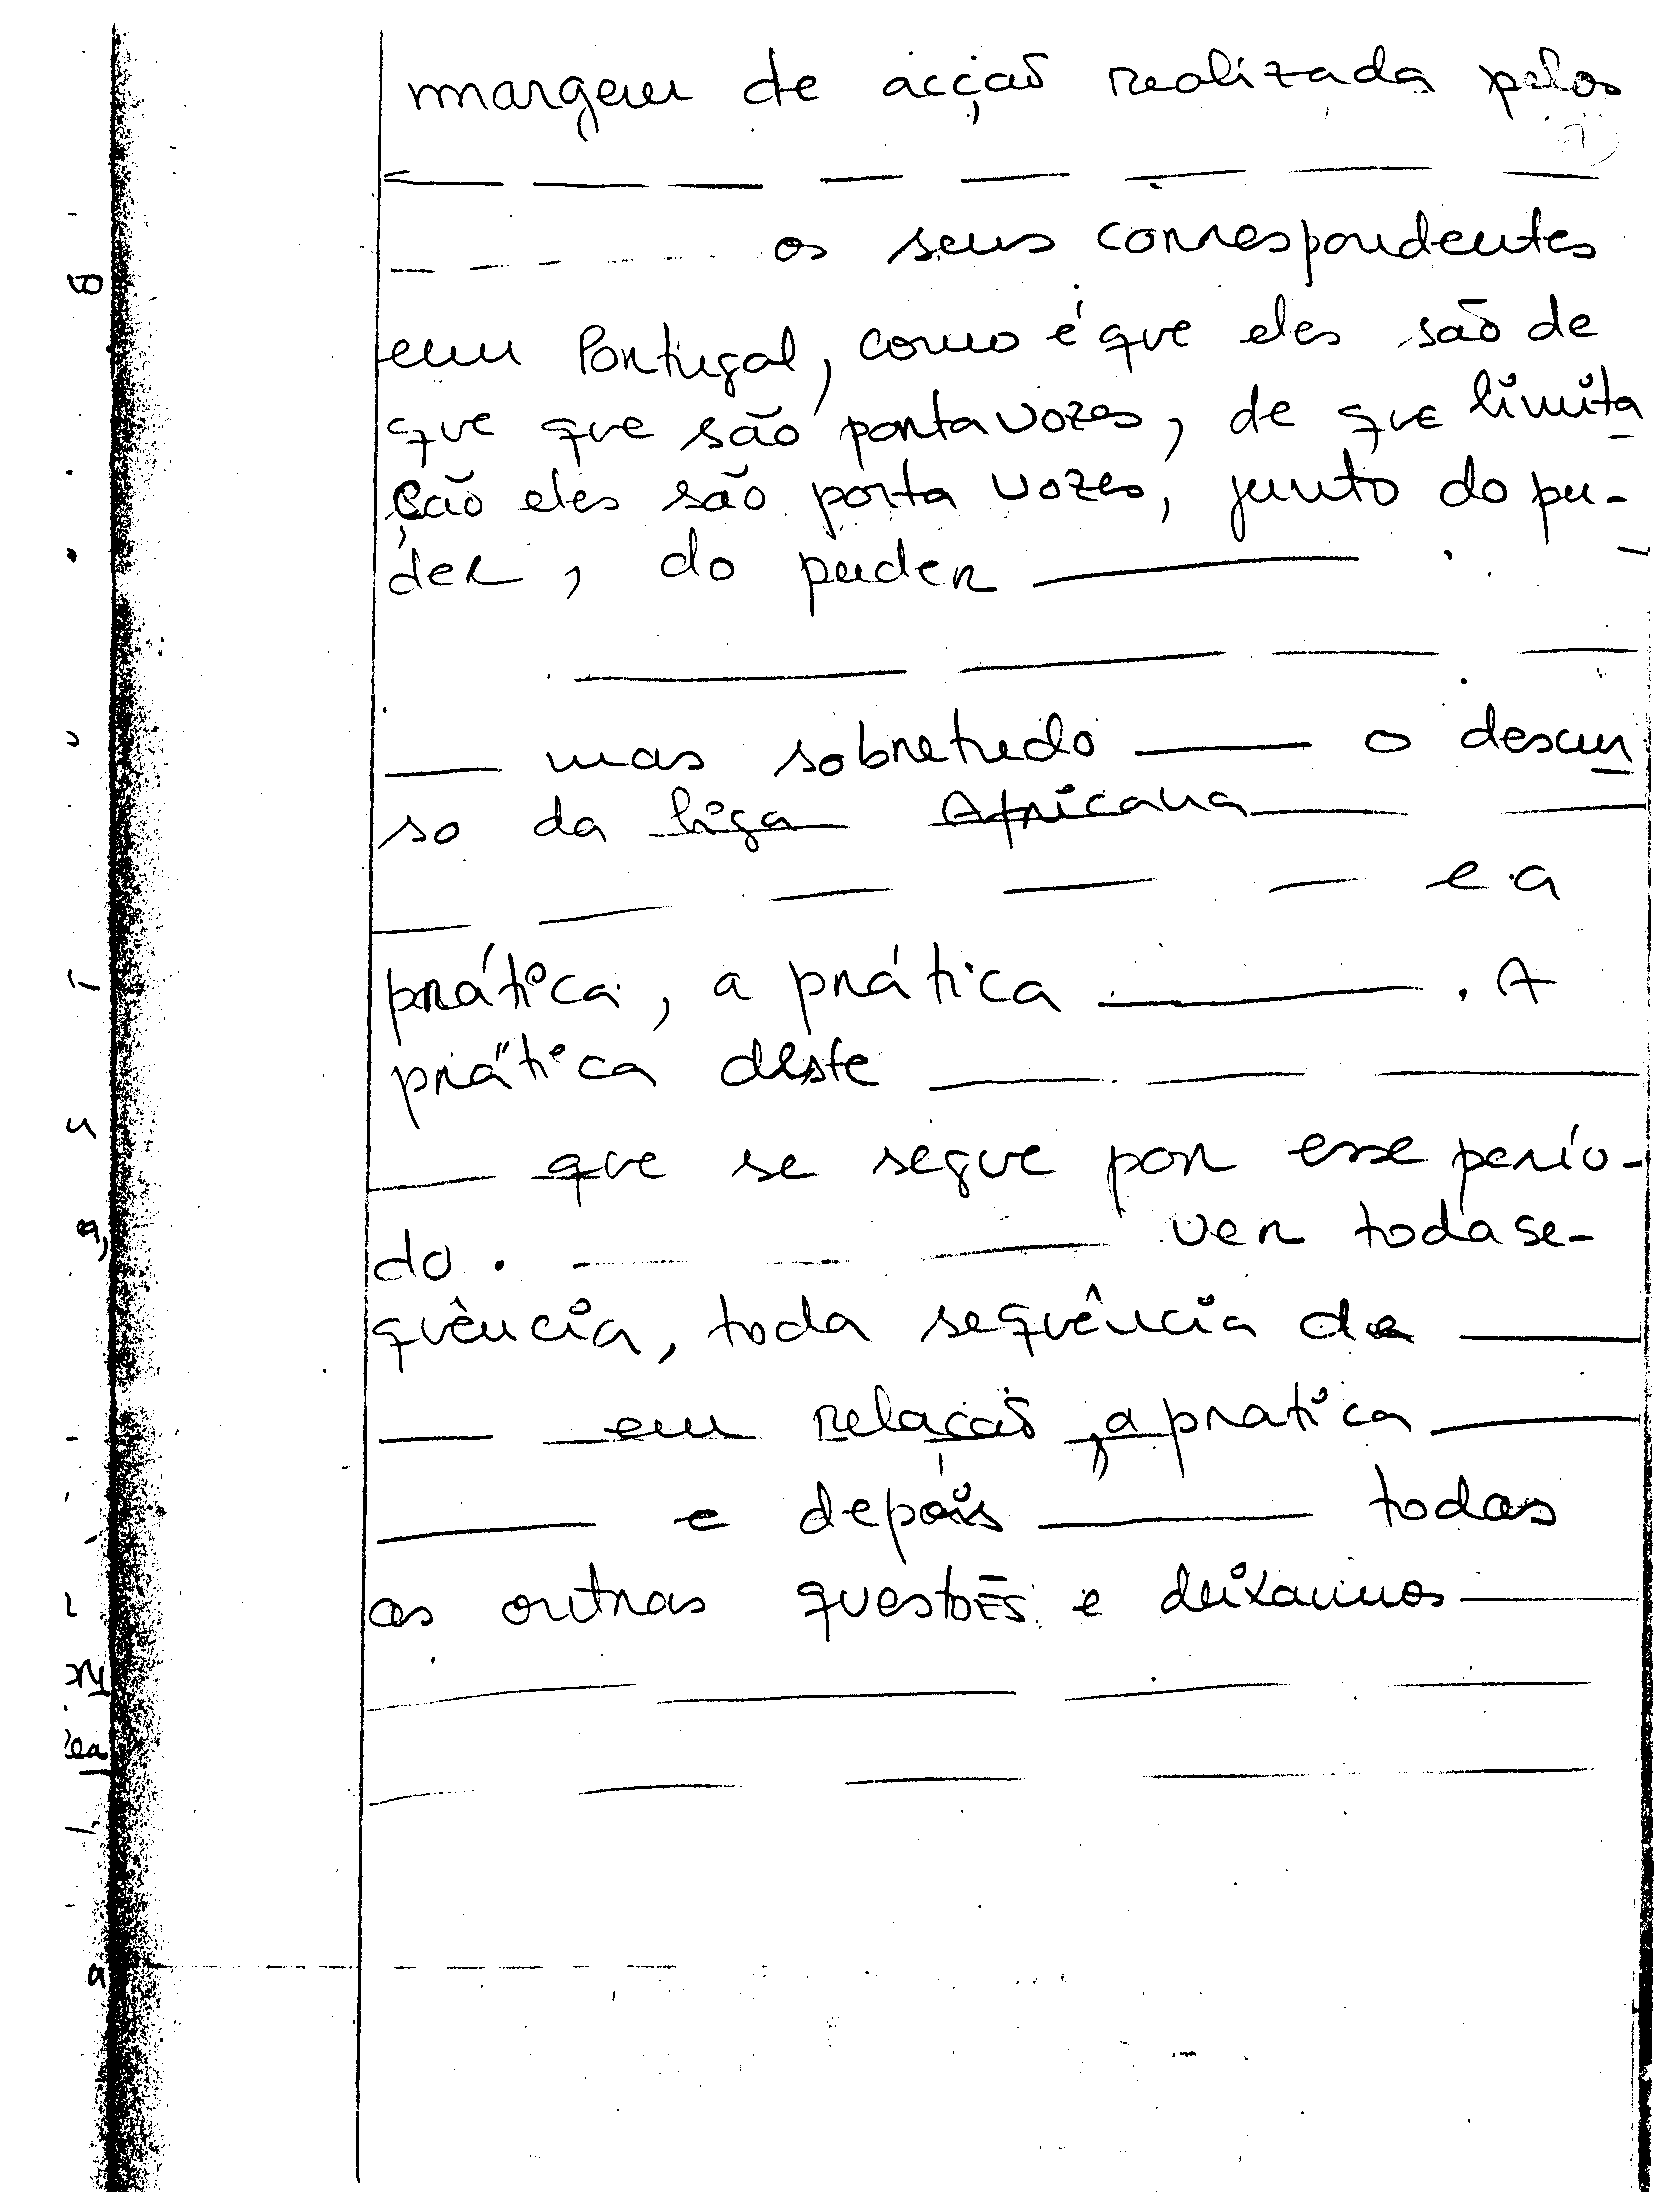 margem de acção realizada pelos
— — — — — — — —
— — — — os seus correspondentes
em Portugal, como é que eles são de
que que são porta vozes, de que limita
ção eles são porta vozes, junto do pu-
der, do puder ——— .
——— ——— ——— ———
— mas sobretudo —— o descur
so da liga Africana —— ——
— — — — — e a
prática, a prática ——— . A
prática deste —— —— ———
— que se segue por esse perío-
do. —— —— —— ver toda se-
quência, toda sequência de ——
— em relação, a pratica ———
——— e depois ——— todas
as outras questões e deixamos ——
——— ——— ——— ———
— — — — —